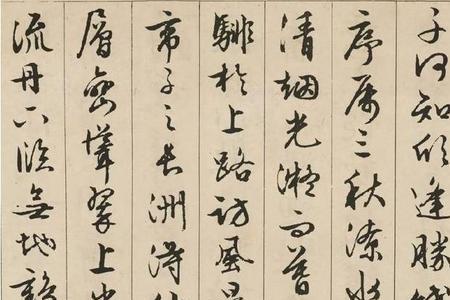 子何知欣逢勝餞
序属三秋潦水
清烟光凝而暮
騑於上路訪風景
帝子之長洲得仙
層巒聳翠上出
流丹下臨無地鶴